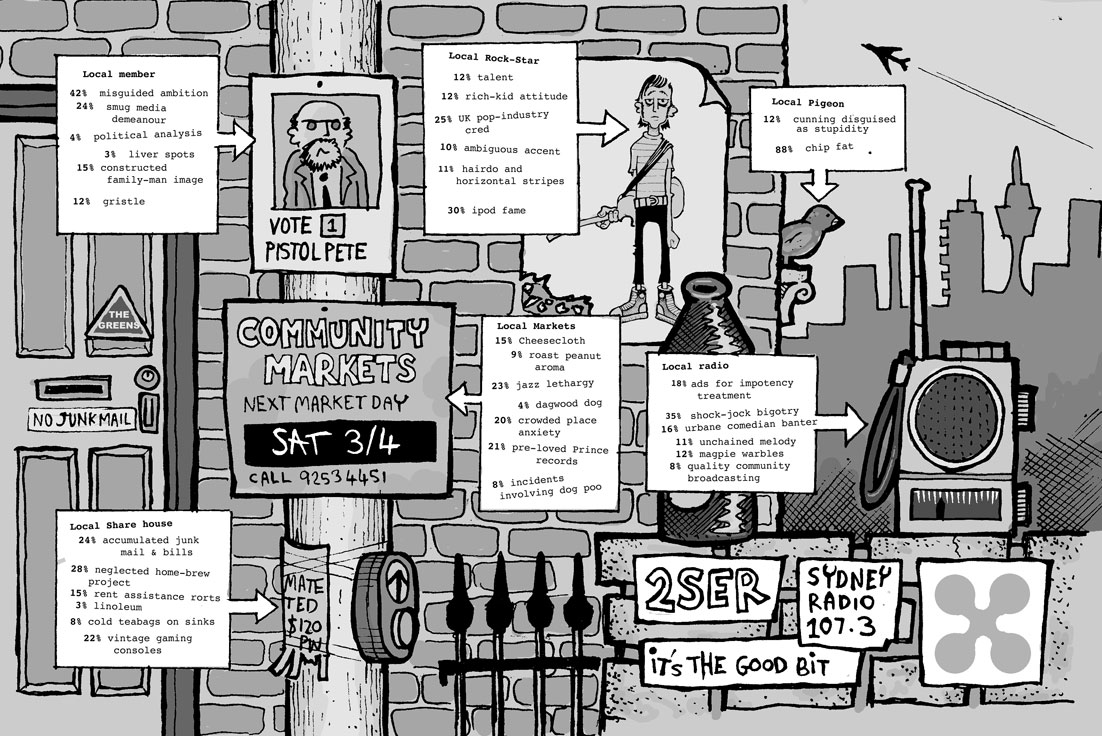 Local member
42% misguided ambition
24% smug media
demeanour
4% political analysis
3% liver spots
15% constructed
family-man image
12% gristle
VOTE 1
PISTOL PETE
Local Rock-Star
12% talent
12% rich-kid attitude
25% UK pop-industry
cred
10% ambiguous accent
11% hairdo and
horizontal stripes
30% ipod fame
Local Pigeon
12% cunning disguised
as stupidity
88% chip fat
THE
GREENS
NO JUNK MAIL
COMMUNITY
MARKETS
NEXT MARKET DAY
SAT 3/4
CALL 92534451
Local Markets
15% Cheesecloth
9% roast peanut
aroma
23% jazz lethargy
4% dagwood dog
20% crowded place
anxiety
21% pre-loved Prince
records
8% incidents
involving dog poo
Local radio
18% ads for impotency
treatment
35% shock-jock bigotry
16% urbane comedian banter
11% unchained melody
12% magpie warbles
8% quality community
broadcasting
Local Share house
24% accumulated junk
mail & bills
28% neglected home-brew
project
15% rent assistance rorts
3% linoleum
8% cold teabags on sinks
22% vintage gaming
consoles
MATE
TED
$120
PW
2SER
SYDNEY
RADIO
107.3
iT'S THE GOOD BIT